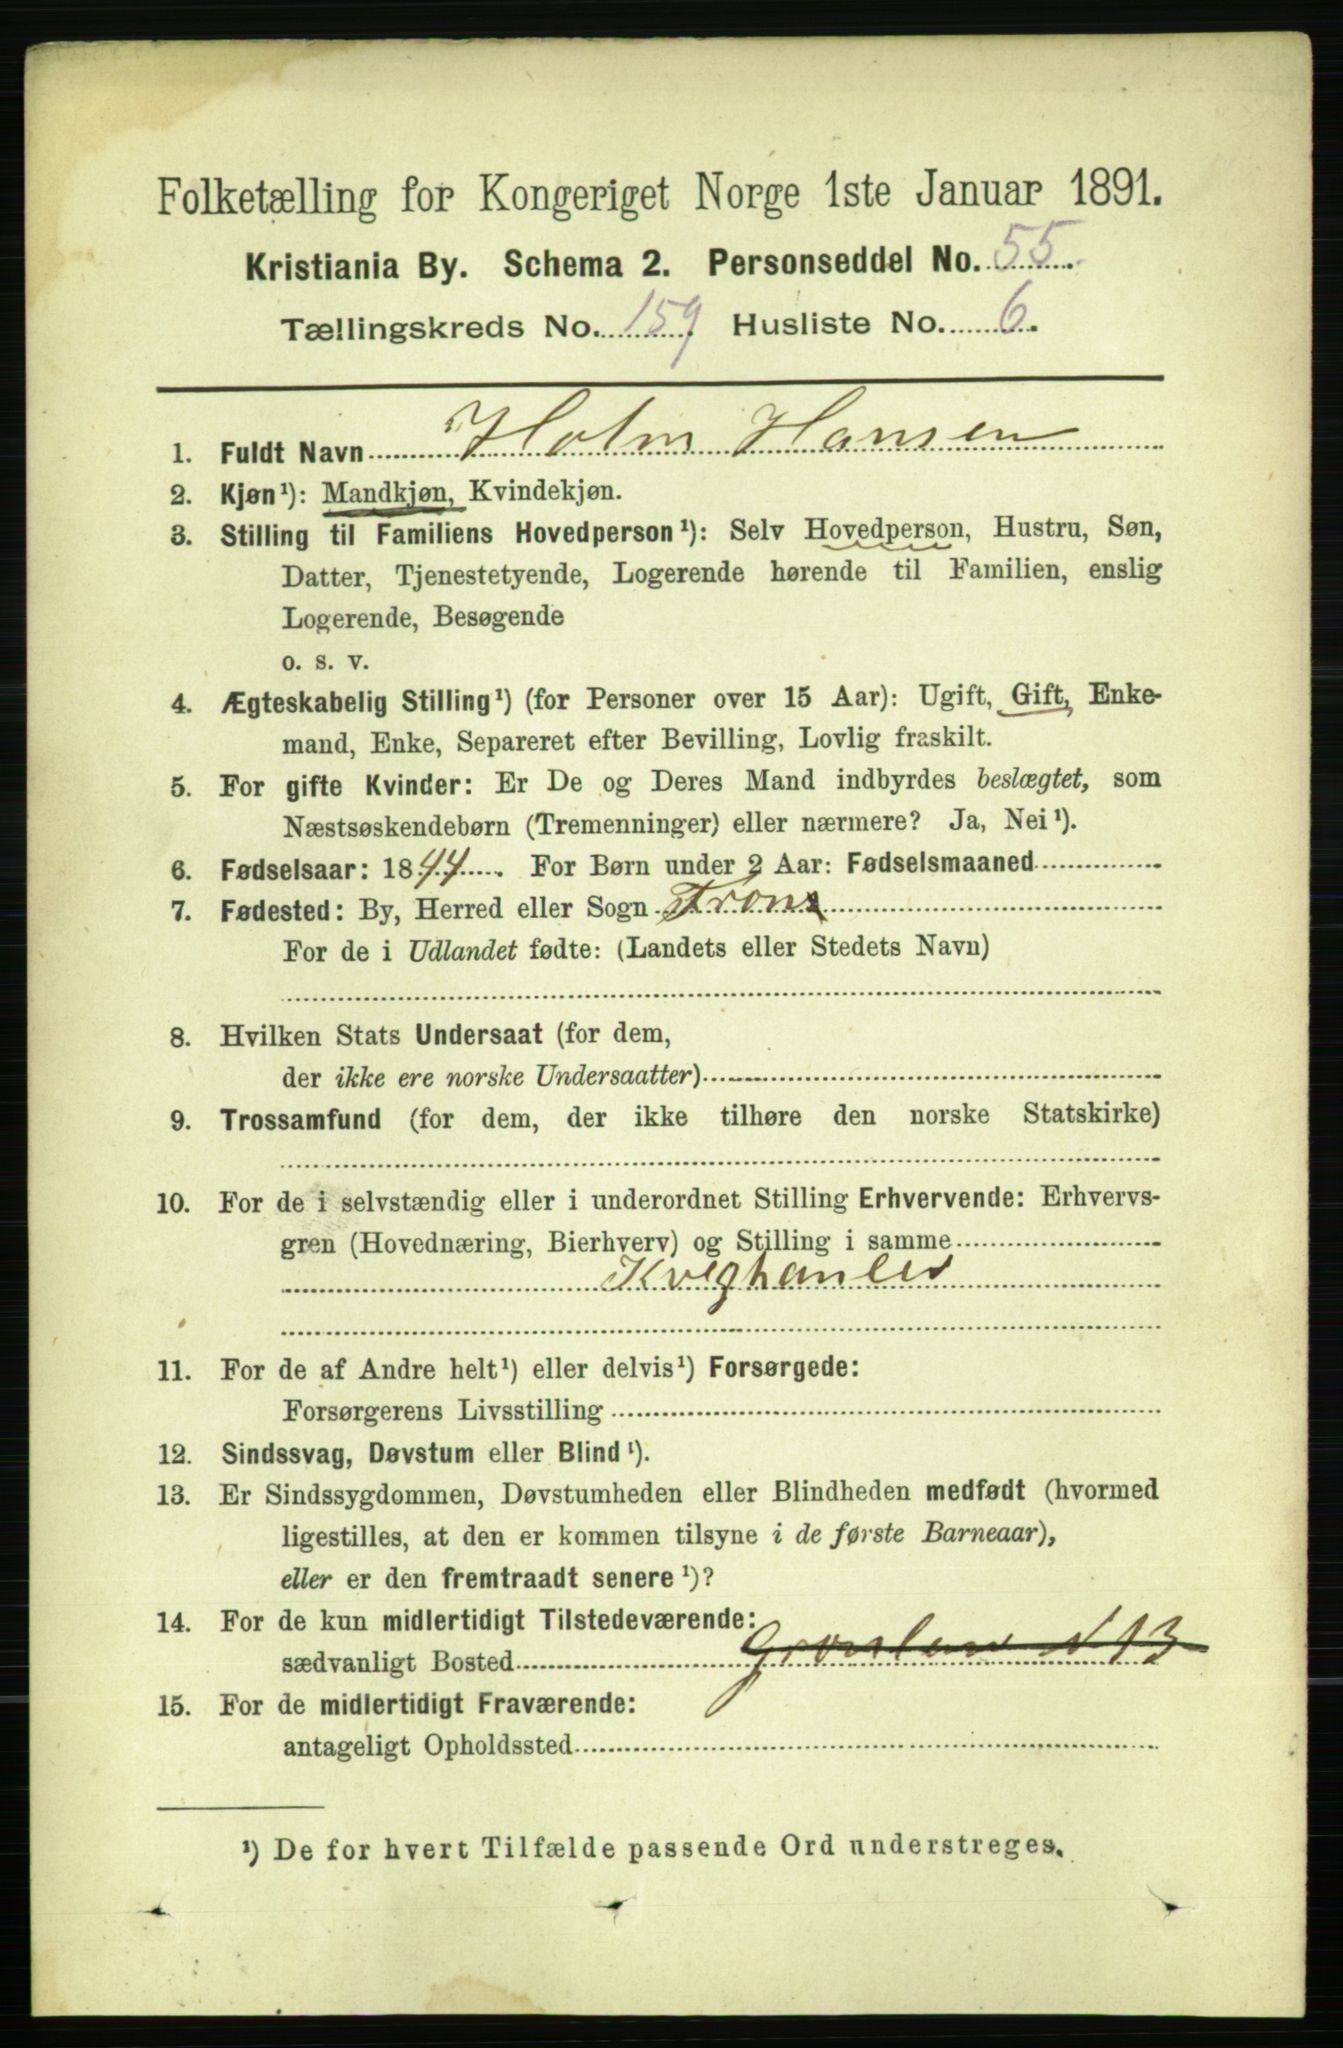 Folketælling for Kongeriget Norge 1ste Januar 1891.
Kristiania By. Schema 2. Personseddel No. 55.
Tællingskreds No. 159. Husliste No. 6.
1. Fuldt Navn Holm Hansen
2. Kjøn¹): Mandkjøn, Kvindekjøn.
3. Stilling til Familiens Hovedperson¹): Selv Hovedperson, Hustru, Søn,
Datter, Tjenestetyende, Logerende hørende til Familien, enslig
Logerende, Besøgende
o. s. v.
4. Ægteskabelig Stilling¹) (for Personer over 15 Aar): Ugift, Gift, Enke-
mand, Enke, Separeret efter Bevilling, Lovlig fraskilt.
5. For gifte Kvinder: Er De og Deres Mand indbyrdes beslægtet, som
Næstsøskendebørn (Tremenninger) eller nærmere? Ja, Nei¹).
6. Fødselsaar: 1844. For Børn under 2 Aar: Fødselsmaaned
7. Fødested: By, Herred eller Sogn
For de i Udlandet fødte: (Landets eller Stedets Navn)
8. Hvilken Stats Undersaat (for dem,
der ikke ere norske Undersaatter)
9. Trossamfund (for dem, der ikke tilhøre den norske Statskirke)
10. For de i selvstændig eller i underordnet Stilling Erhvervende: Erhvervs-
gren (Hovednæring, Bierhverv) og Stilling i samme
Kveghanler
11. For de af Andre helt¹) eller delvis¹) Forsørgede:
Forsørgerens Livsstilling
12. Sindssvag, Døvstum eller Blind¹).
13. Er Sindssygdommen, Døvstumheden eller Blindheden medfødt (hvormed
ligestilles, at den er kommen tilsyne i de første Barneaar),
eller er den fremtraadt senere¹)?
14. For de kun midlertidigt Tilstedeværende:
sædvanligt Bosted Grønlan N 13
15. For de midlertidigt Fraværende:
antageligt Opholdssted
¹) De for hvert Tilfælde passende Ord understreges.